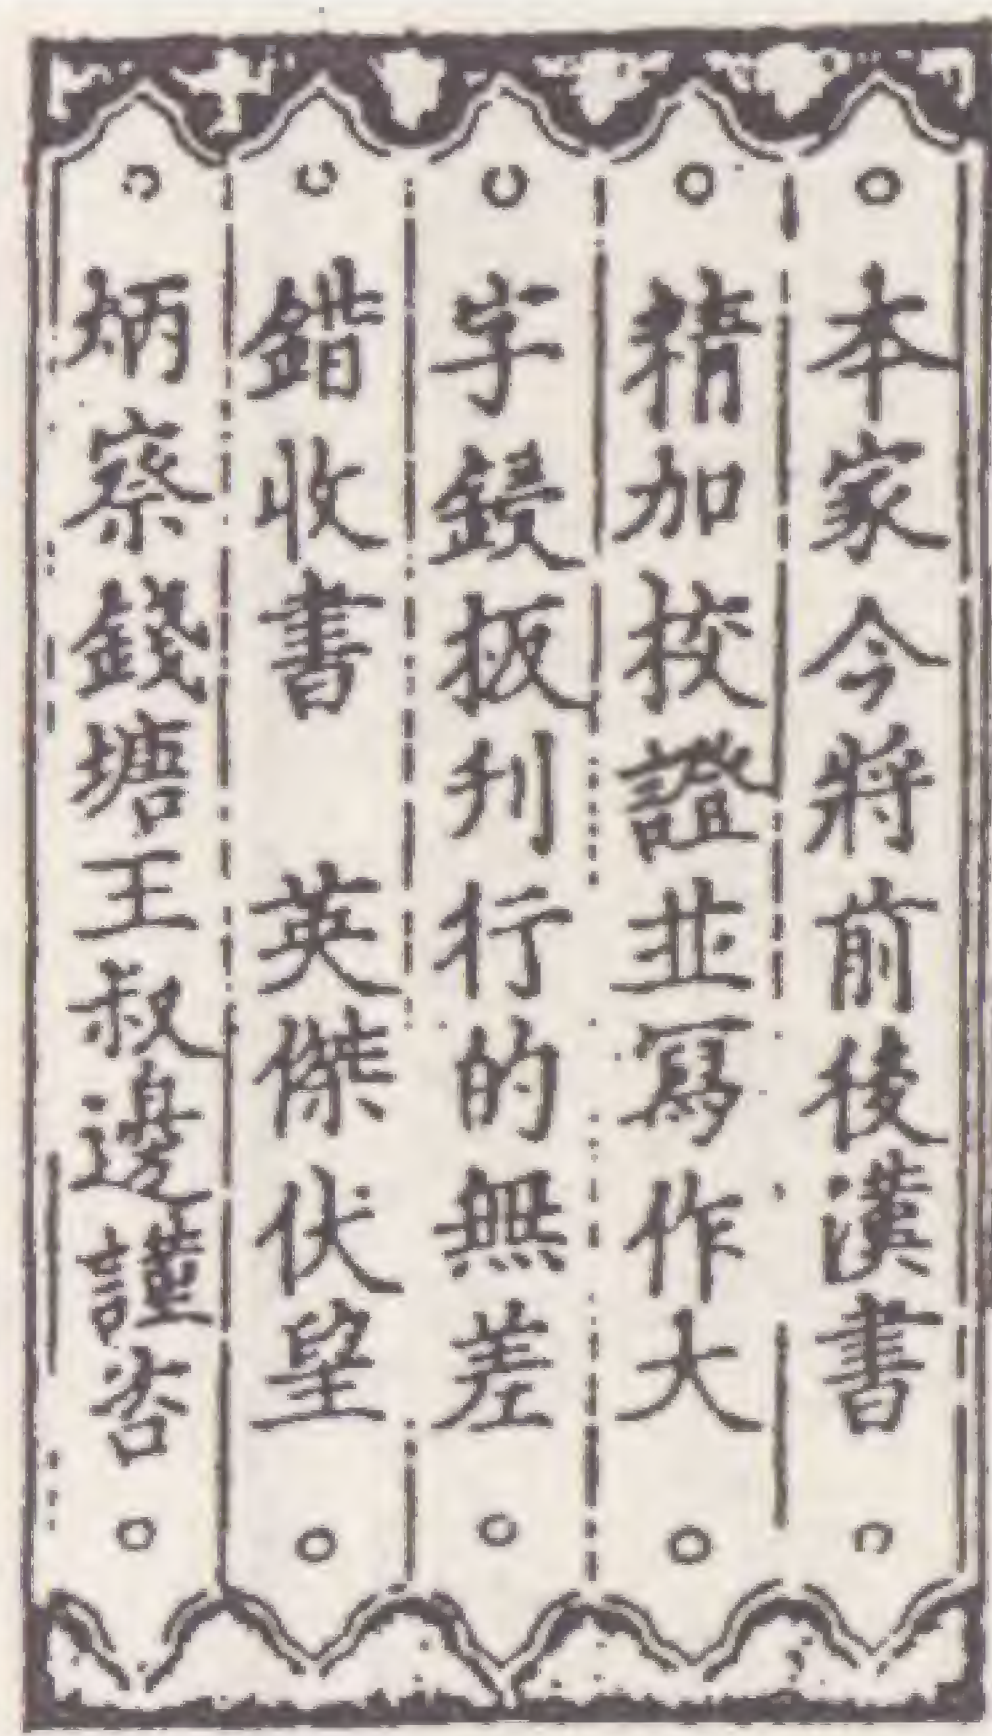 本家今將前後漢書
精加校證並寫作大
字鋟板刊行的無差
錯收書　英傑伏望
炳察錢塘王叔邊謹咨